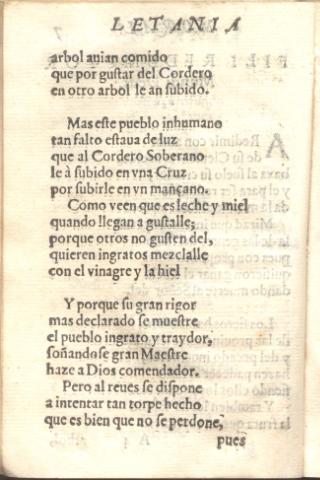 LETANIA
arbol auian comido
que por gustar del Cordero
en otro arbol le an subido.
Mas este pueblo inhumano
tan falto estaua de luz
que al Cordero Soberano
le à subido en vna Cruz
por subirle en vn mançano.
Como veen que es leche y miel
quando llegan a gustalle;
porque otros no gusten del,
quieren ingratos mezclalle
con el vinagre y la hiel
Y porque su gran rigor
mas declarado se muestre
el pueblo ingrato y traydor,
soñandose gran Maestre
haze a Dios comendador.
Pero al reues se dispone
a intentar tan torpe hecho
que es bien que no se perdone,
pues